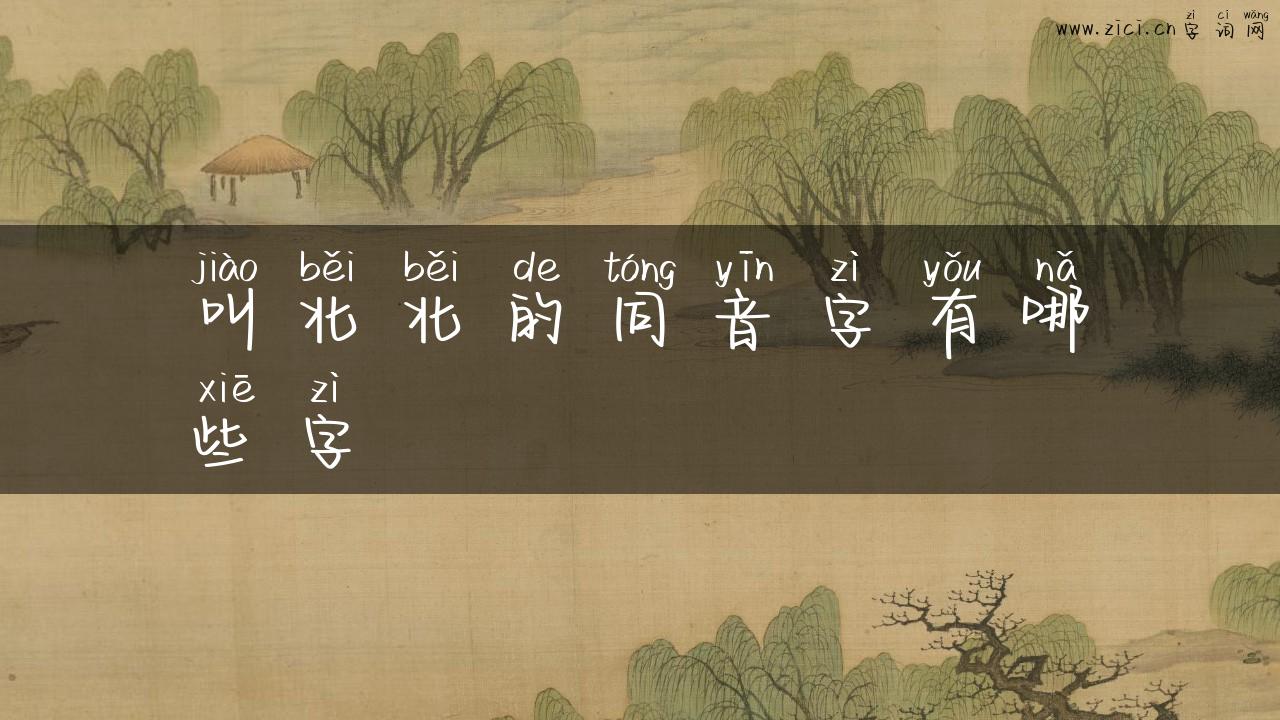 zì cí wǎng
www.zici.cn字词网
jiào běi běi de tóng yīn zì yǒu nǎ
叫北北的同音字有哪
xiē zì
些字